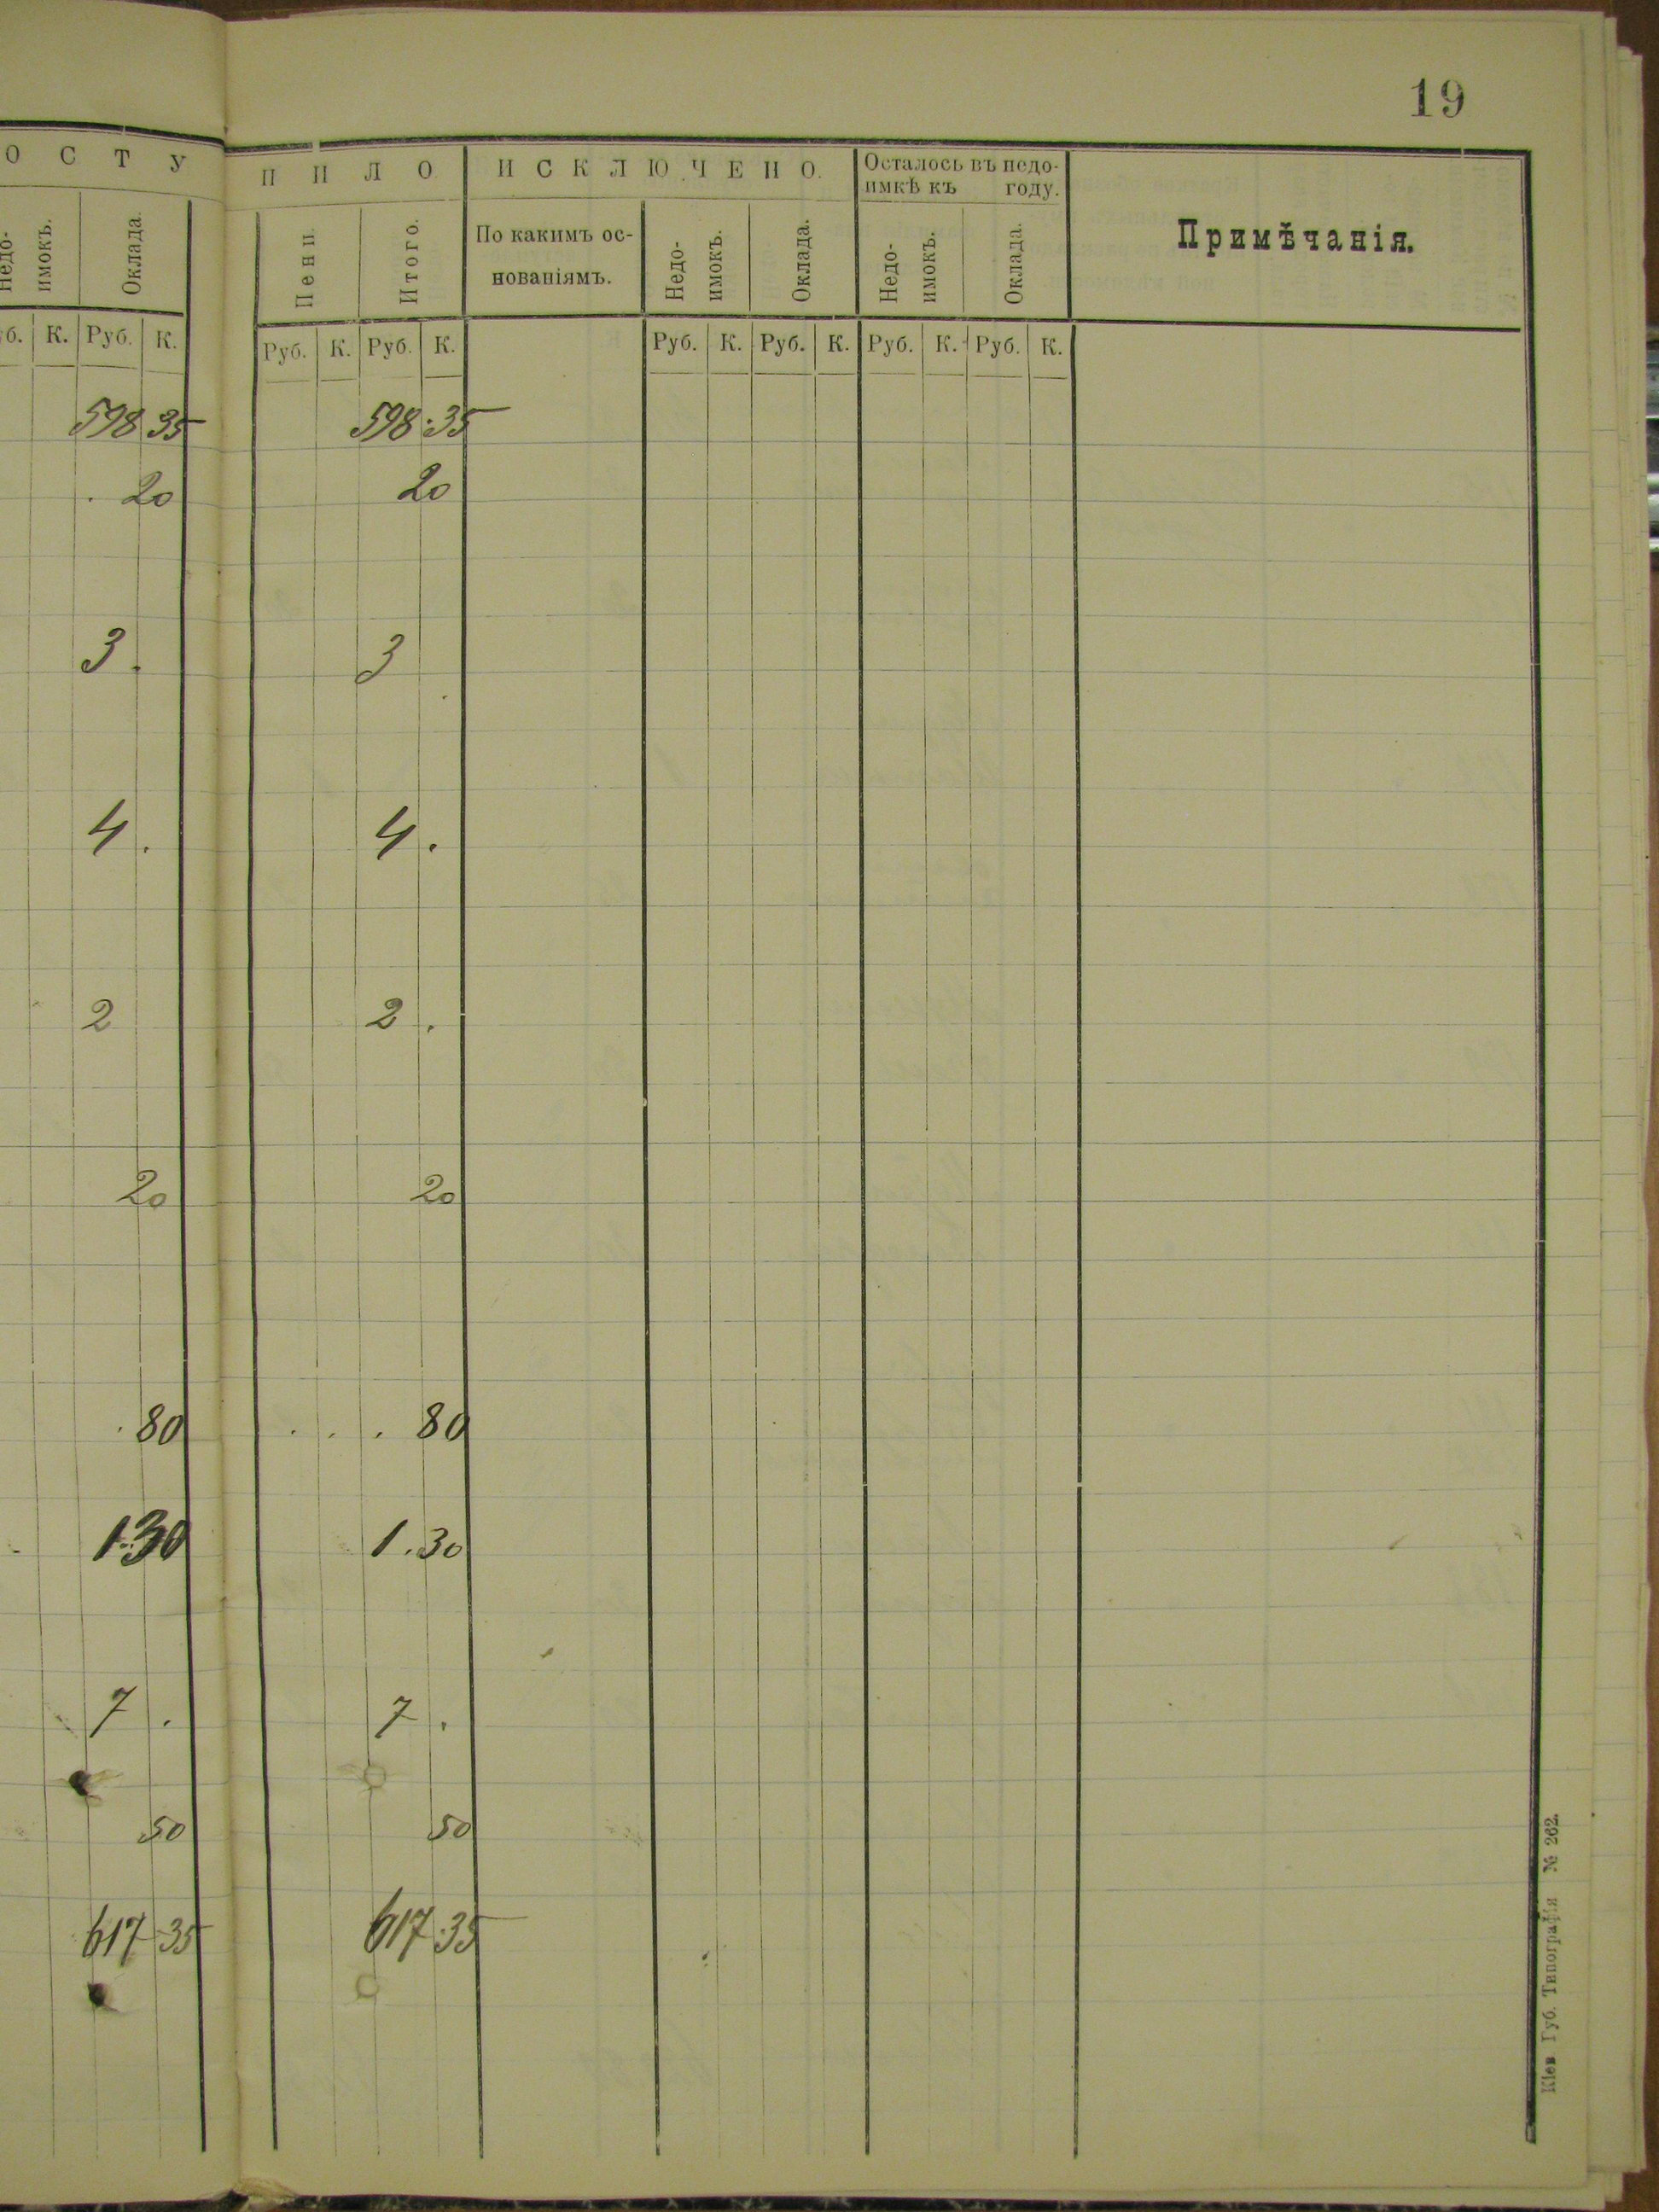 19
О С Т У П И Л О И С К Л Ю Ч Е Н О. Осталось въ недо-
имкѣ къ году.
Недо-
имокъ. Оклада. Пени. Итого. По какимъ ос-
нованіямъ. Недо-
имокъ. Оклада. Недо-
имокъ. Оклада. Примѣчанія.
уб. К. Руб. К. Руб. К. Руб. К. Руб. К. Руб. К. Руб. К. Руб. К.
598 35 598.35
. 20 20
3. 3
4. 4.
2 2.
20 20
. 80 . . . 80
1.30 1.30
7. 7.
50 50
617.35 617.35
Кіев Губ. Типографія № 262.